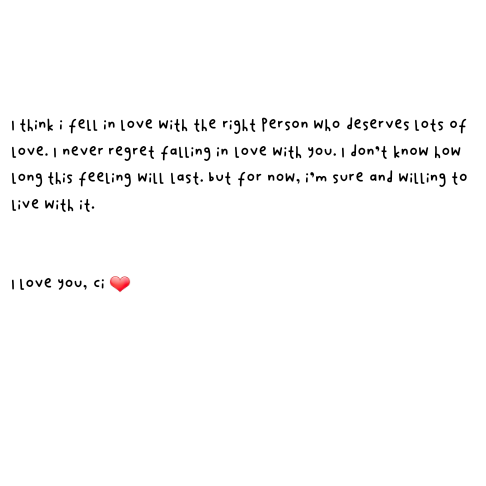 I think i fell in love with the right person who deserves lots of
love. I never regret falling in love with you. I don't know how
long this feeling will last. but for now, i'm sure and willing to
live with it.
I love you, ci ❤️